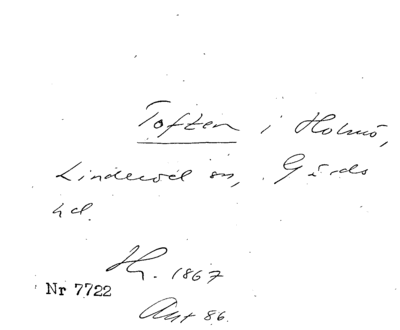 Toften i Holmö,
Linderöd sn, Gärds
hd.
Hz. 1867
Nr 7722
Akt 86.